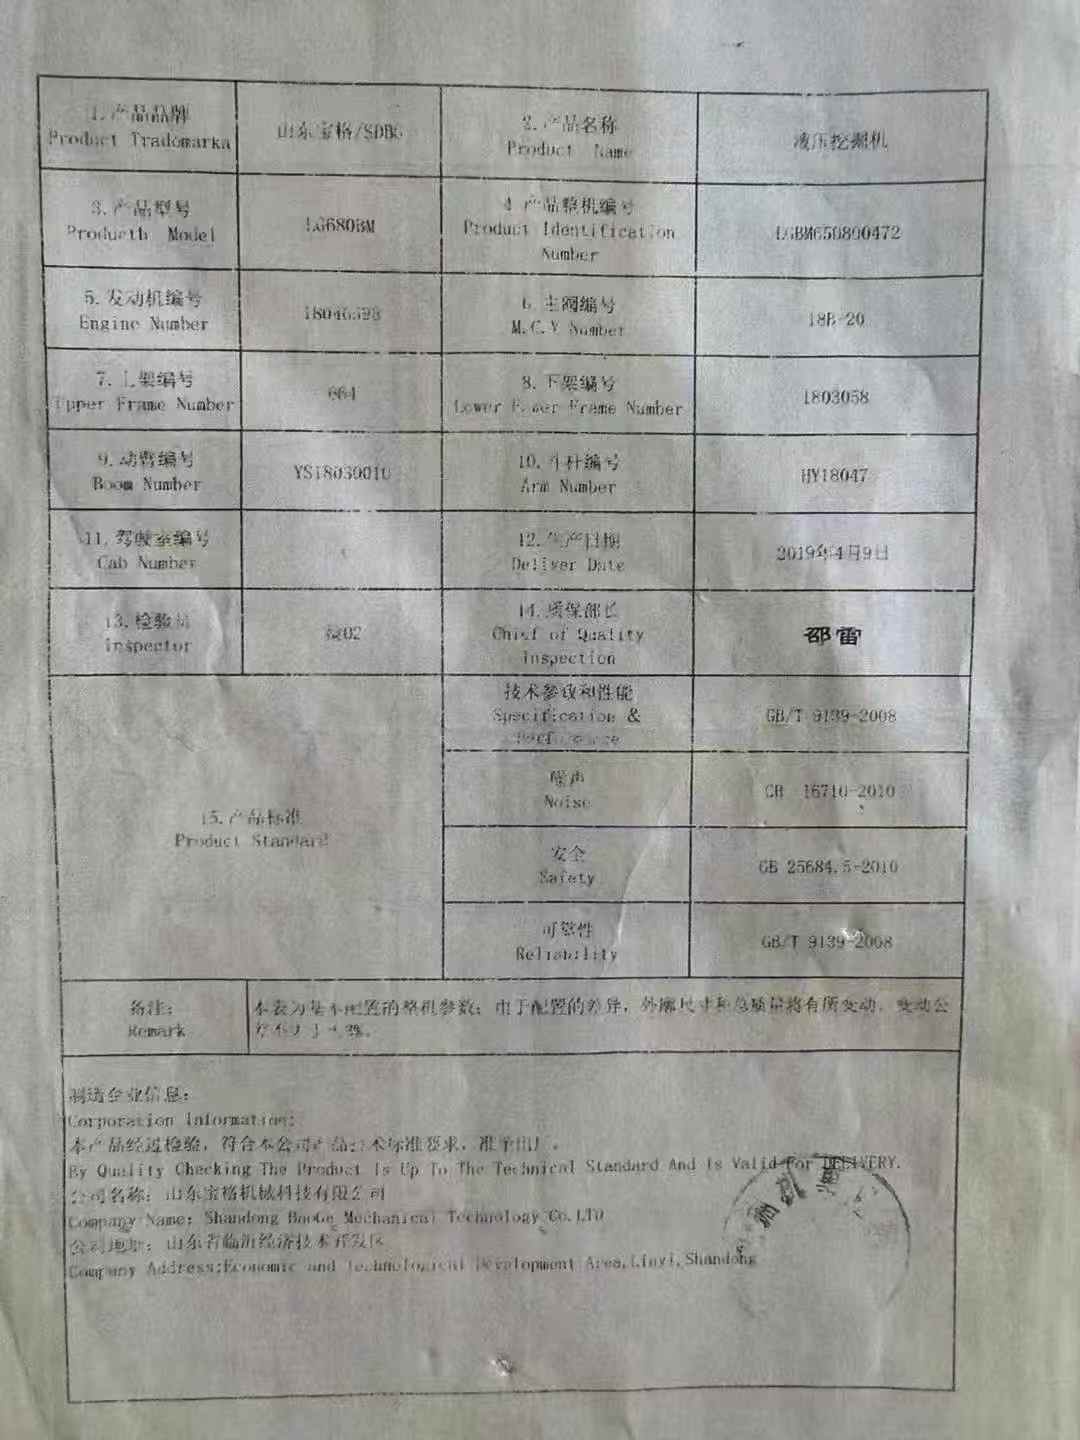 1.产品品牌
Product Tradomarka
山东宝格/SDBG
2.产品名称
Product Name
液压挖掘机
3.产品型号
Producth Model
LG680BM
4.产品整机编号
Product Identification
Number
5.发动机编号
Engine Number
6.主阀编号
M.C.V Number
18B-20
7.上架编号
Upper Frame Number
664
8.下架编号
Lower Power Frame Number
1803058
9.动臂编号
Boom Number
YS18030010
10.斗杆编号
Arm Number
HY18047
11.驾驶室编号
Cab Number
12.生产日期
Deliver Date
2019年4月9日
13.检验员
Inspector
检02
14.质保部长
Chief of Quality
Inspection
邵雷
15.产品标准
Product Standard
技术参数和性能
Specification &
GB/T 9139-2008
噪声
Noise
GB 16710-2010
安全
Safety
GB 25684.5-2010
可靠性
Reliability
GB/T 9139-2008
备注:
Remark
本表为基本配置的整机参数;由于配置的差异,外廓尺寸和总质量将有所变动,变动公
差不大于
制造企业信息:
Corporation Information:
本产品经过检验,符合本公司产品技术标准要求,准予出厂。
By Quality Checking The Product Is Up To The Technical Standard And Is Valid For DELIVERY.
公司名称:山东宝格机械科技有限公司
Company Name: Shandong BaoGe Mechanical Technology Co.LTD
公司地址:山东省临沂经济技术开发区
Company Address:Economic and Technological Development Area,Linyi,Shandong